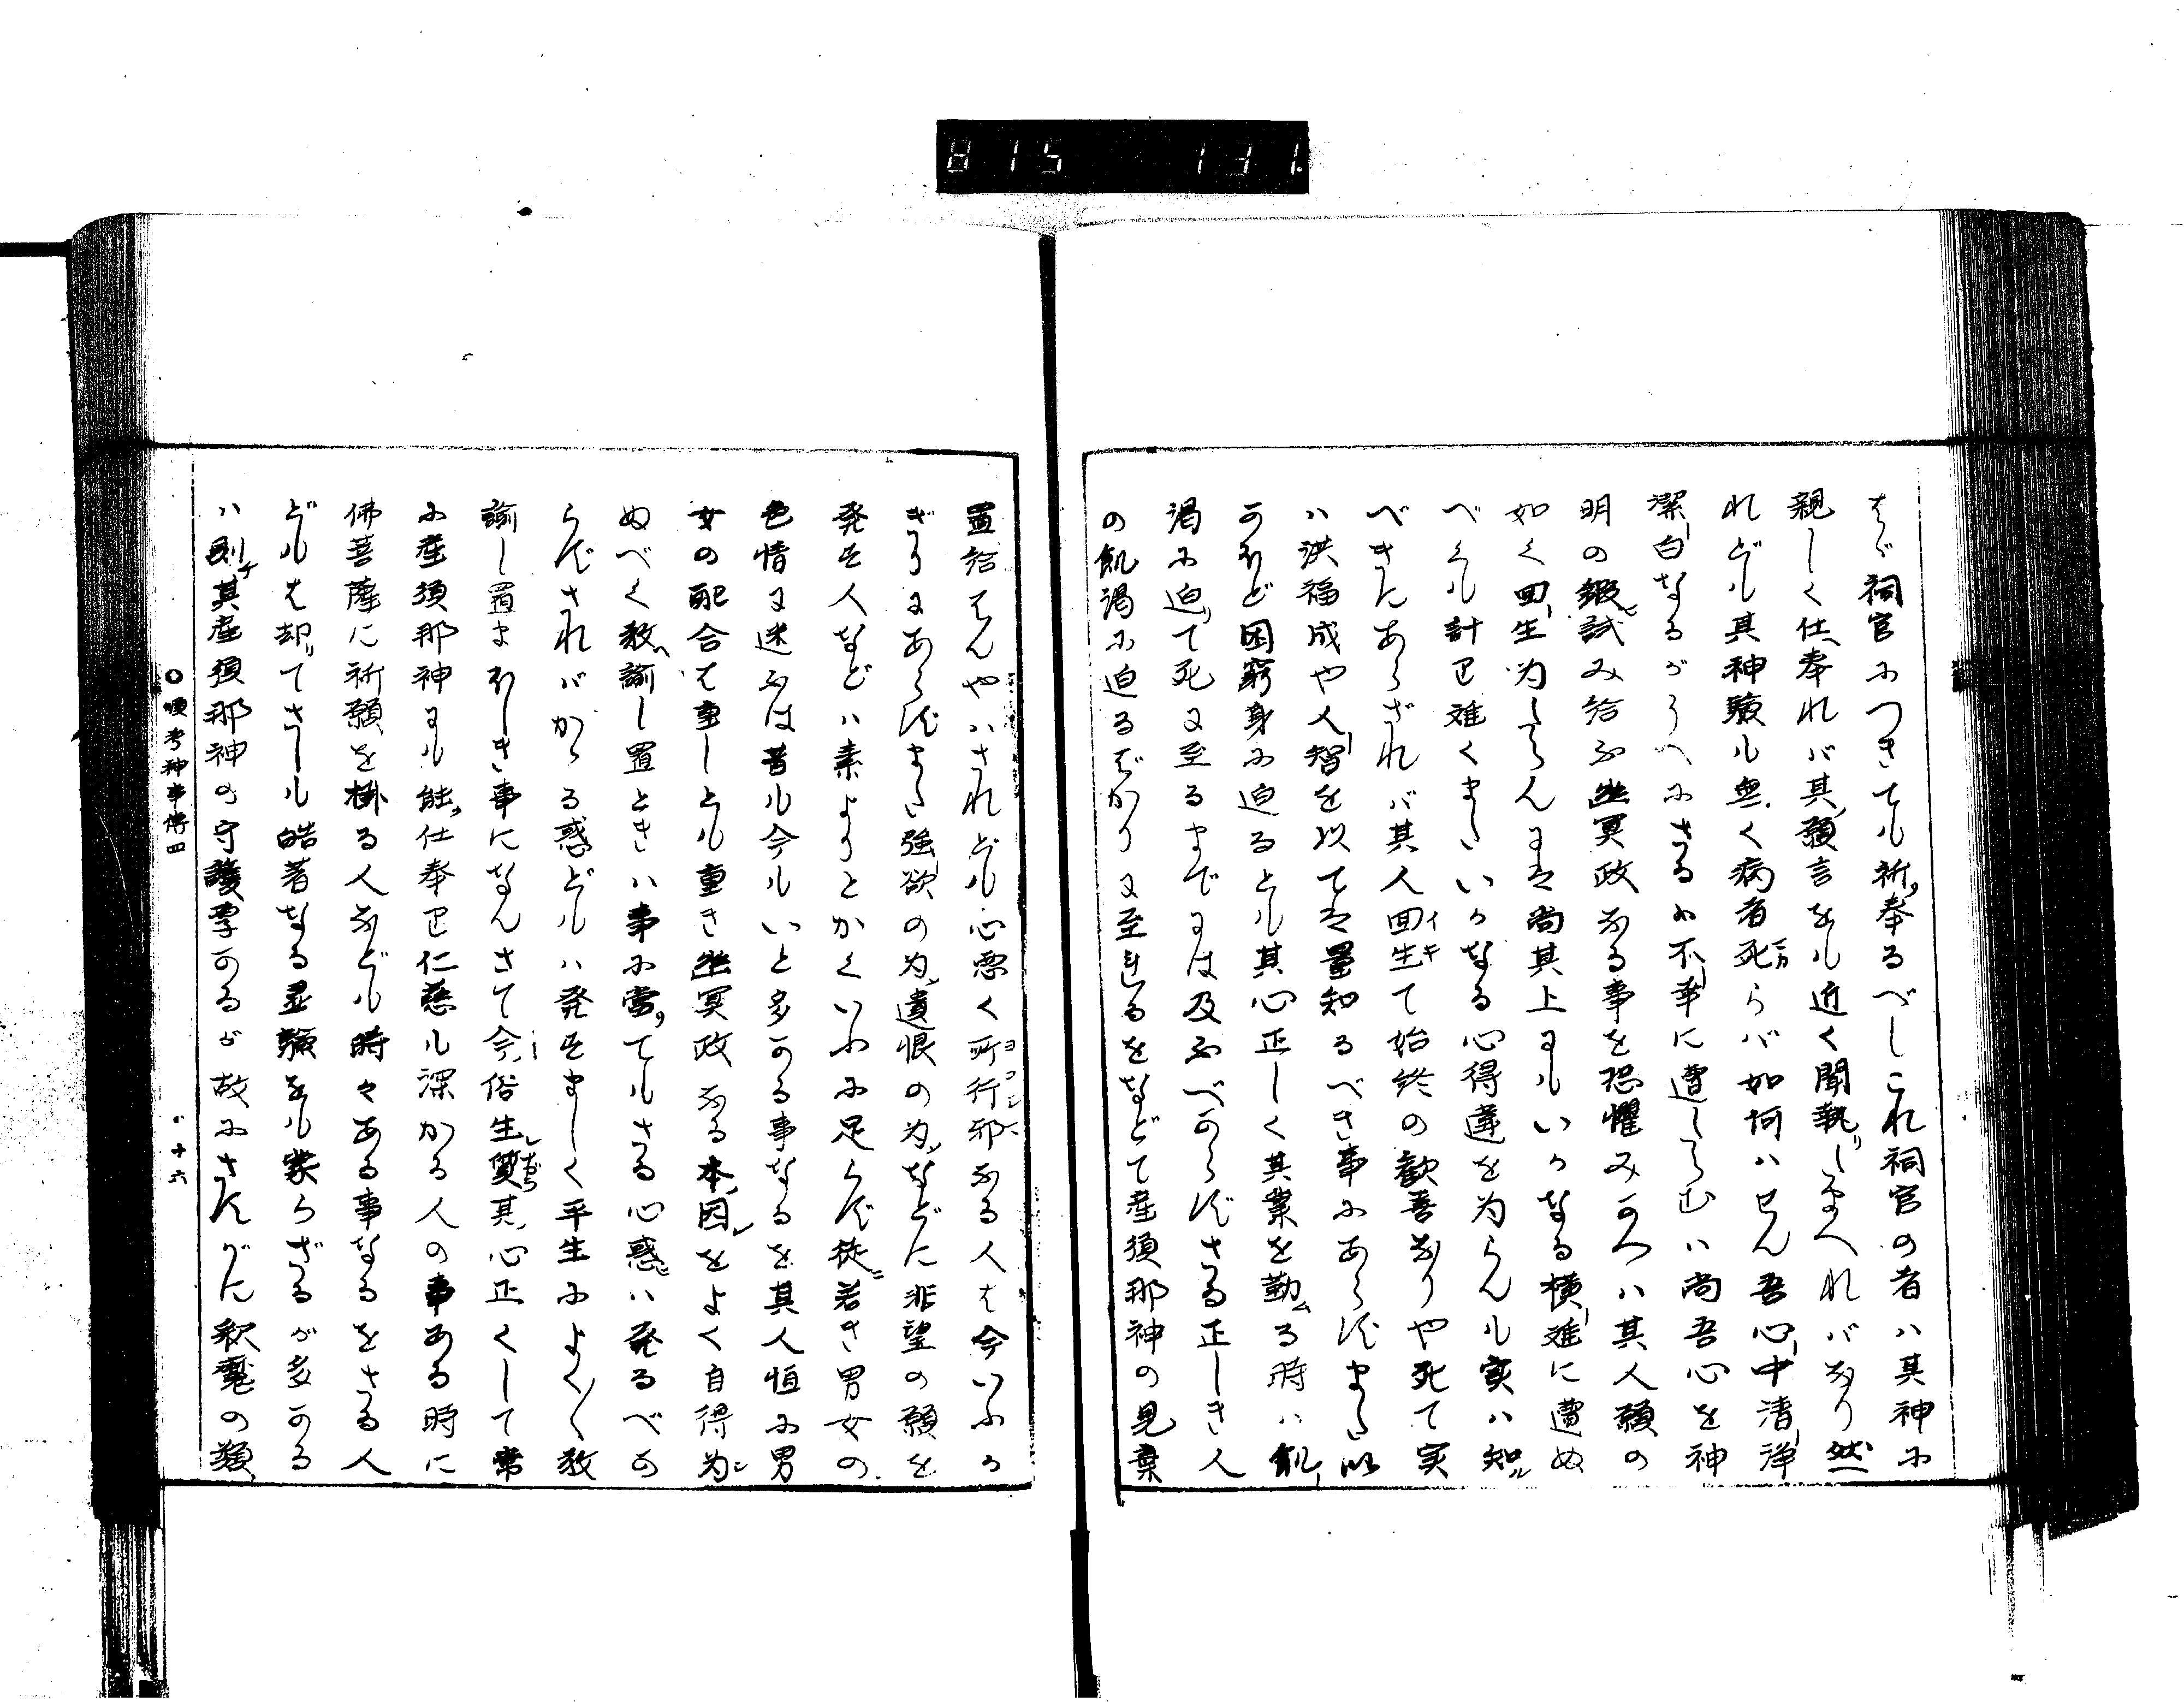 815 131
はゞ祠官につきても祈奉るべしこれ祠官の者ハ其神に
親しく仕奉れバ其願言をも近く聞執しまへれバなり然
れども其神験も無く病者死らバ如何ハせん吾心中清浄
潔白なるがうへにさるハ不幸に遭しらむハ尚吾心を神
明の鍛試み給ふ幽冥政なる事を恐懼みかつハ其人願の
如く回生為しらんにも尚其上にもいかなる横難に遭ぬ
べくも計り難くまたいかなる心得違を為らんも実ハ知
べきにあらざれバ其人回生て始終の歓喜なりや死て実
ハ洪福成や人智を以ては量知るべき事にあらずまた以
かほど困窮身に迫るとも其心正しく其業を勤る時ハ飢
渇に迫て死に至るまでには及ふべからずさる正しき人
の飢渇に迫るばかりに至れるをなどて産須那神の見棄
置給はんやハされども心悪く所行邪なる人は今いふか
ぎりにあらずまた強欲の為遺恨の為などに非望の願を
発す人などハ素よりとかくいふに足らず徒若き男女の
色情に迷ふは昔も今もいと多かる事なるを其人恒に男
女の配合は事しとも重き幽冥政なる本因をよく自得為
ぬべく教諭し置ときハ事に当てもさる心惑ハ発るべか
らずされバかゝる惑どもハ発すまじく平生によく〳〵教
諭し置まほしき事になんさて今俗生質其心正くして常
に産須那神にも能仕奉り仁慈も深かる人の事ある時に
佛菩薩に祈願を掛る人なども時々ある事なるをさる人
どもは却てさしも皓著なる霊験をも蒙らざるが多かる
ハ則其産須那神の守護厚かるが故にさすがに釈魔の類
○順考神事傳四
十六